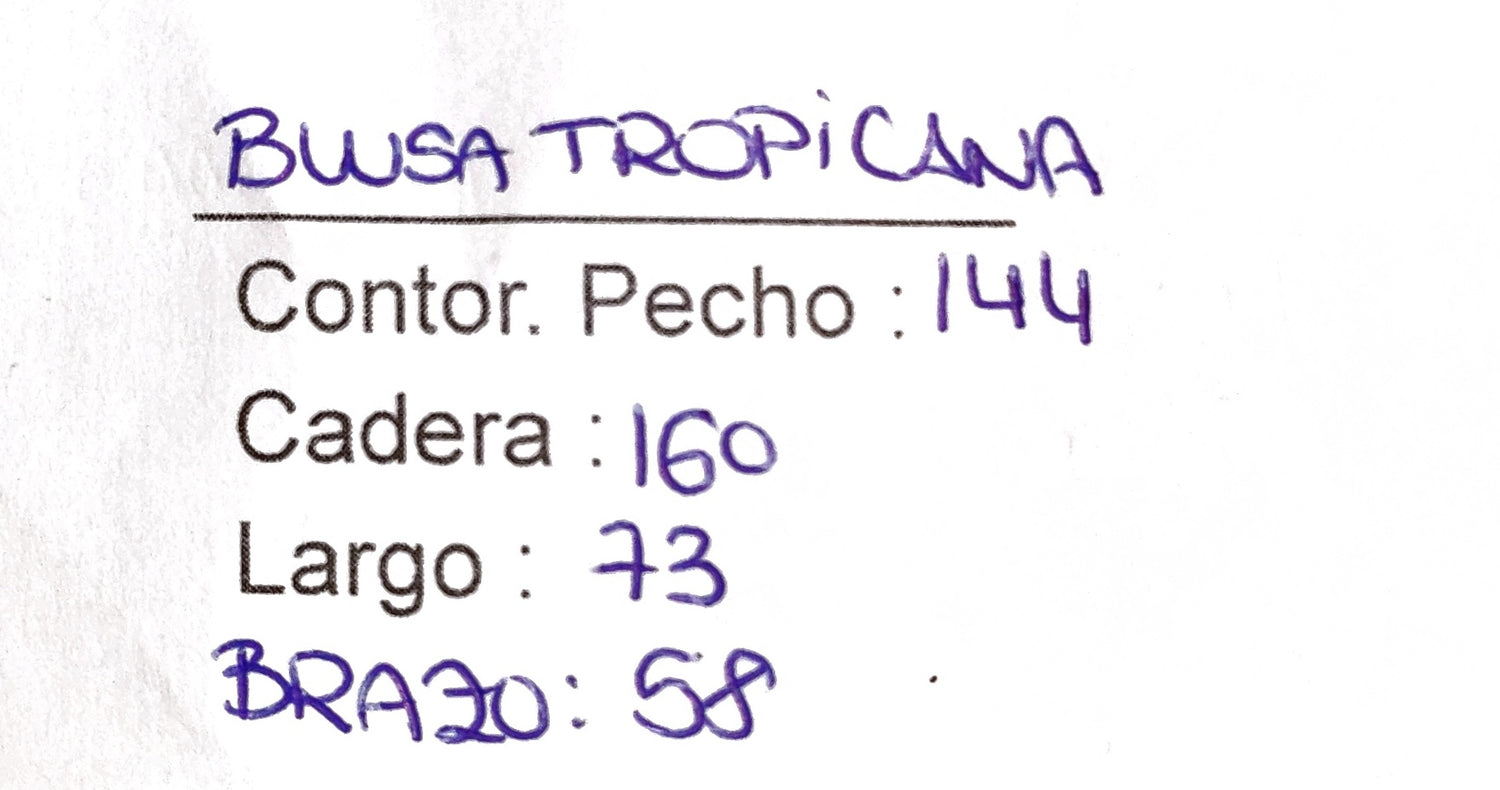 BLUSA TROPiCANA
Contor. Pecho : 144
Cadera : 160
Largo : 73
BRAZO : 58